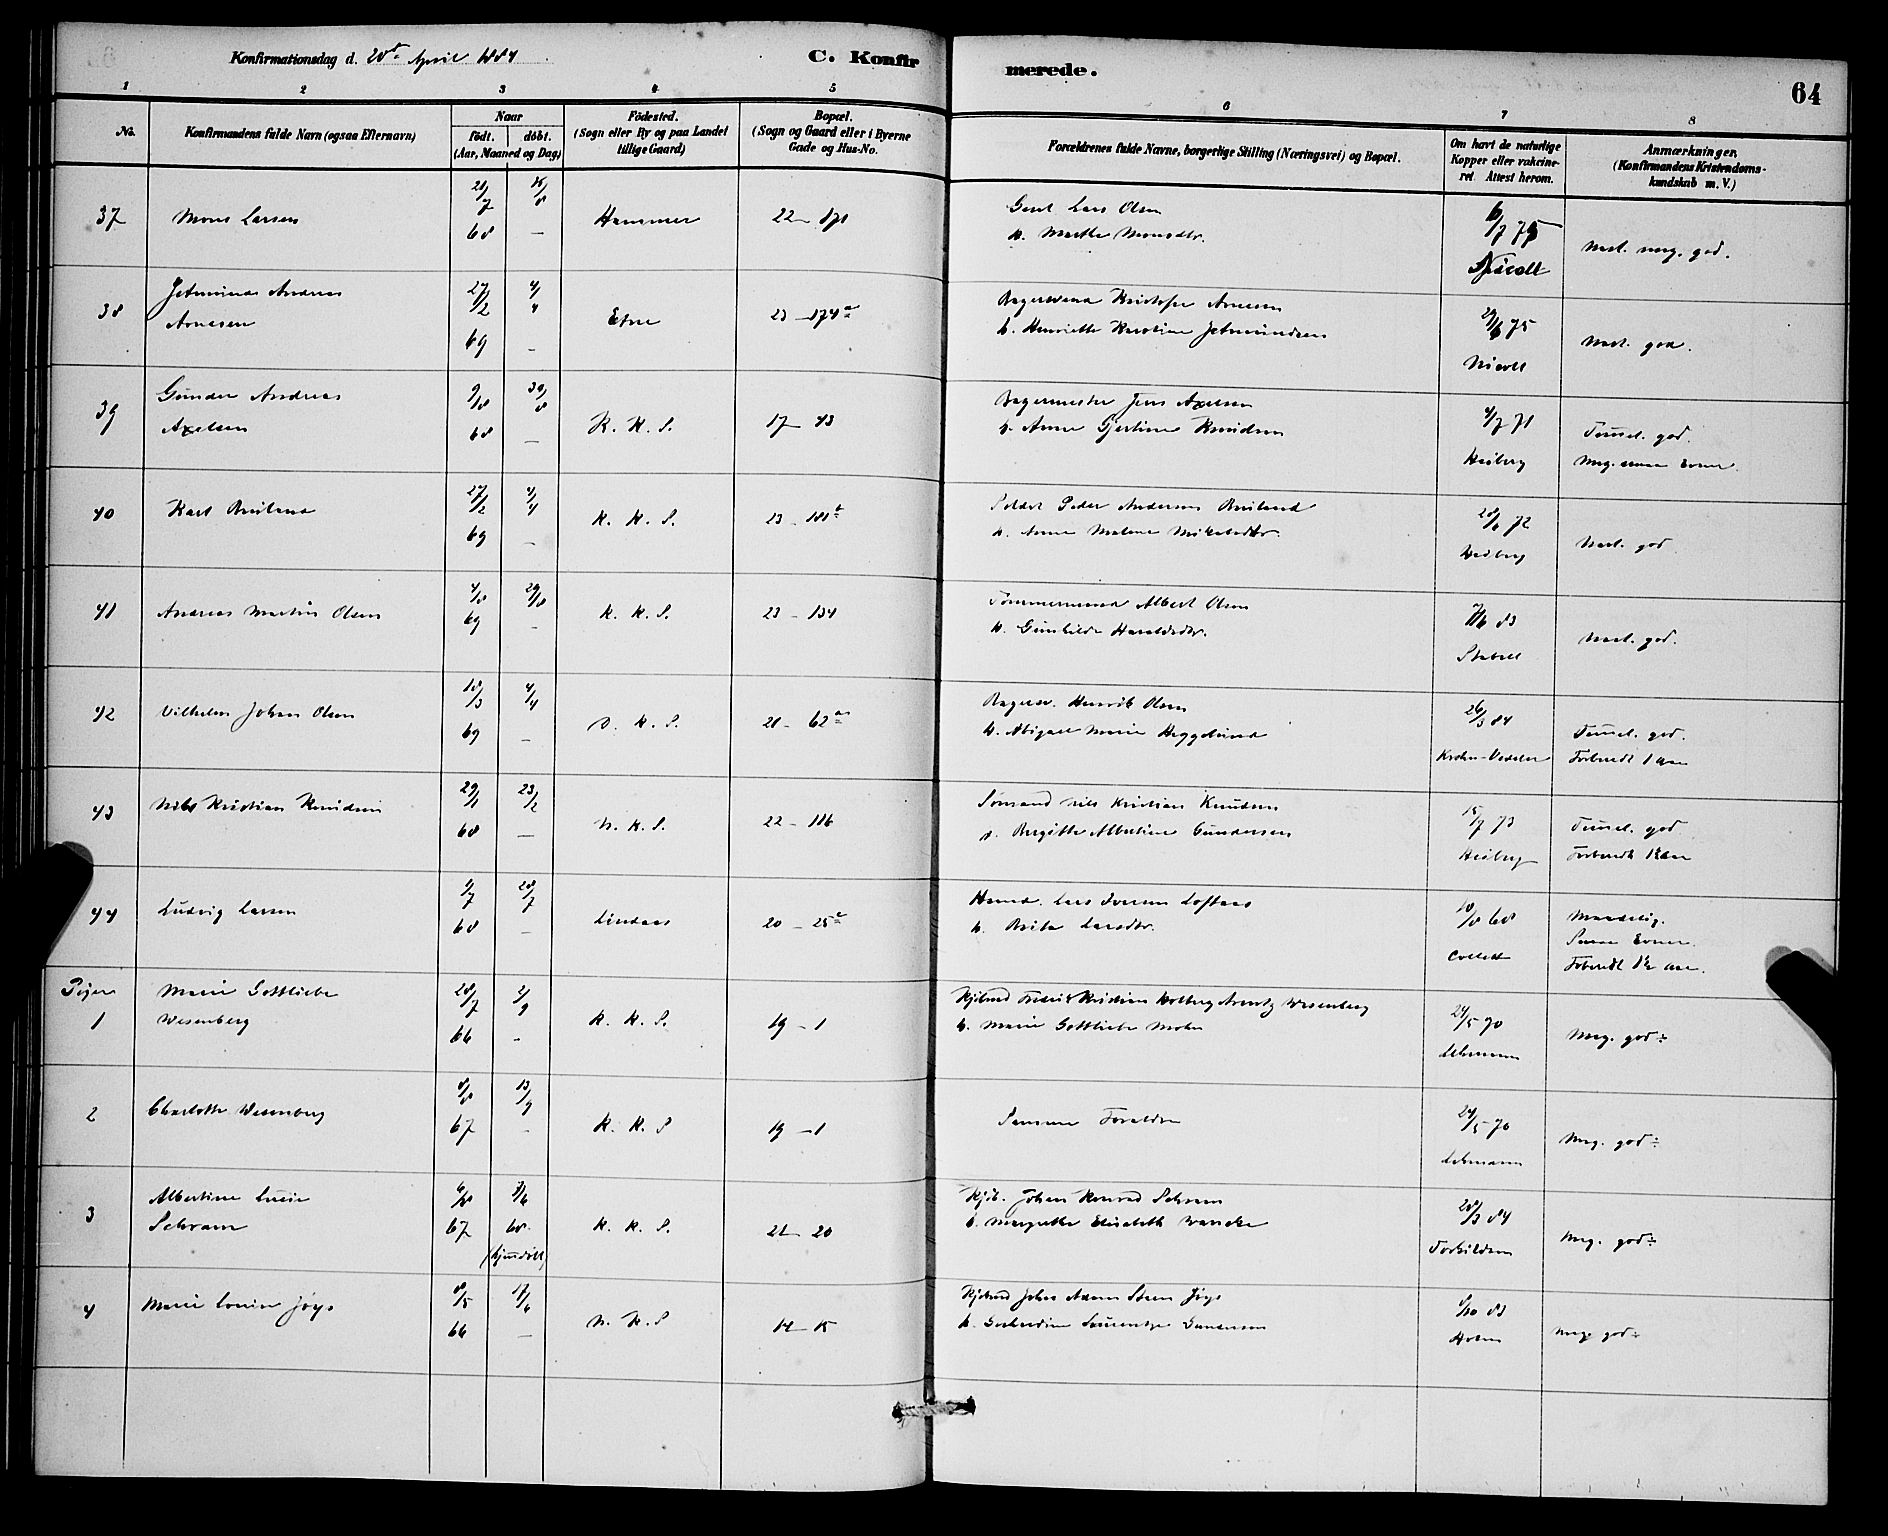 Konfirmationsdag d. 20de April 1884
C. Konfirmerede.
64
1 2 3 4 5 6 7 8
No.
Konfirmandens fulde Navn (ogsaa Efternavn)
Naar
födt. döbt.
(Aar, Maaned og Dag)
Födested.
(Sogn eller By og paa Landet
tillige Gaard)
Bopæl.
(Sogn og Gaard eller i Byerne
Gade og Hus-No.
Forældrenes fulde Navne, borgerlige Stilling (Næringsvei) og Bopæl.
Om havt de naturlige
Kopper eller vakcine-
ret. Attest herom.
Anmærkninger.
(Konfirmandens Kristendoms-
kundskab m. V.)
37 Mons Larsen 21/7 68 Hammer 22 - 171
Lars Olsen
h. Marthe Monsdtr.
6/7 75
Nicoll
Mest. meg. god.
38 Jetmund Andreas
Arnesen
27/2 69 4/4 - Etne 23 - 174a
Kristofer Arnesen
h. Henriette Karoline Jetmundsen
29/6 75
Nicoll
Mest. god.
39 Gunder Andreas
Axelsen
9/8 68 30/8 - K. K. S. 17 - 43
Bagermester Jens Axelsen
h. Anne Gjertine Knudsen
4/7 71
Heiberg
Temmel. god.
40 Karl 27/2 69 4/4 - K. K. S. 23 - 181
Peder Andersen
h. Anne Malene
28/6 72
Heiberg
Mest. god
41 Andreas Martin Olsen 4/8 69 29/8 - K. K. S. 23 - 134
Tømmermand Albert Olsen
h. Gunhilde Haraldsdtr.
7/6 83
Stabell
Mest. god.
42 Vilhelm Johan Olsen 10/3 69 4/4 - D. K. S. 21 - 62
Henrik Olsen
h. Abigael Marie Heggelund
26/3 84
Krohn-Vedeler
Temmel. god.
Forberedt 1 Aar
43 Nils Kristian Knudsen 29/1 68 23/2 - N. K. S. 22 - 116
Sømand Nils Kristian Knudsen
h. Birgitte Albertine Gundersen
15/7 73
Heiberg
Temmel. god
Forberedt 1½ Aar
44 Ludvig Larsen 9/7 68 28/7 - Lindaas 20 - 25
Lars Iversen Loftaas
h. Brita Larsdtr.
10/8 68
Collett
Maadelig.
Smaa Evner.
Forberedt 1½ Aar.
Piger
1 Marie Gottliebe
Wesenberg
28/7 66 2/9 - K. K. S. 19 - 1
Kjøbmd Fredrik Kristian Holberg Arentz Wesenberg
h. Marie Gottliebe Mohn
24/5 70
Lehmann
Meg. god÷
2 Charlotte Wesenberg 8/8 67 13/9 - K. K. S 19 - 1
Samme Forældre
24/5 70
Lehmann
Meg. god÷
3 Albertine Lucie
Schram
67 68
(hjemdøbt) K. K. S. 21 - 20
Kjøb. Johan Konrad Schram
h. Margrethe Elisabeth Brancke
28/3 84
Torkildsen
Meg. god÷
4 Marie Louise Jøys 8/5 66 17/6 - N. K. S 14 - 15
Kjøbmd Johan Adam Steen Jøys
h. Laurentze Gundersen
8/10 83
Holm
Meg god÷